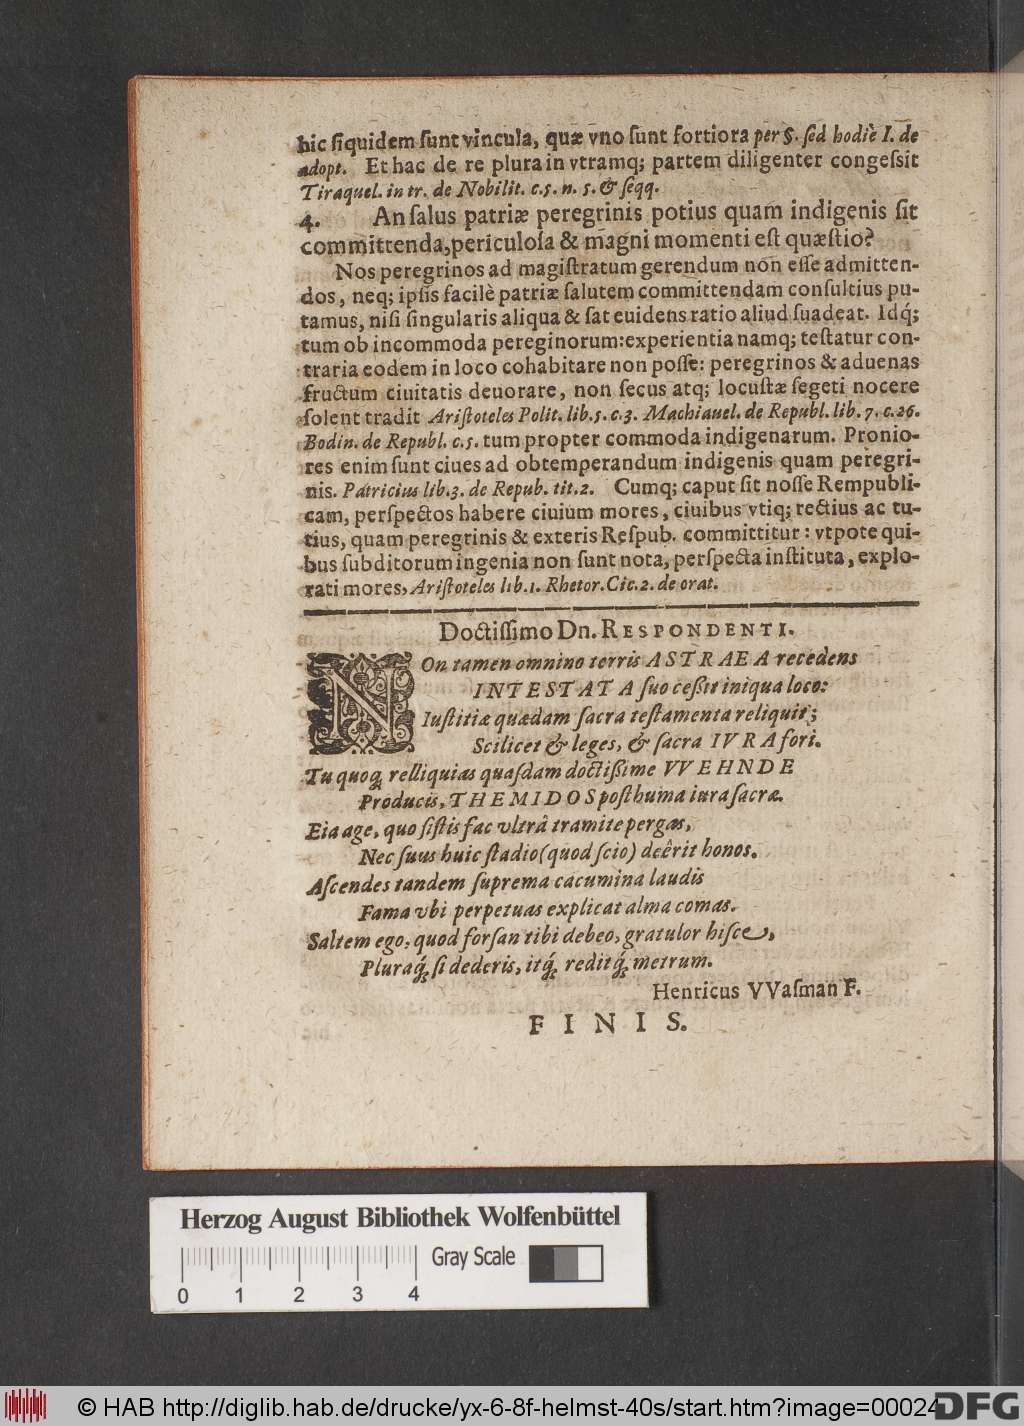 hic ſiquidem ſunt vincula, quæ vno ſunt fortiora per §. ſed hodiè I. de
adopt. Et hac de re plura in vtramq; partem diligenter congeſsit
Tiraquel. in tr. de Nobilit. c.5. n. 5. & ſeqq.
4. An ſalus patriæ peregrinis potius quam indigenis ſit
committenda, periculoſa & magni momenti eſt quæſtio?
Nos peregrinos ad magiſtratum gerendum non eſſe admitten-
dos, neq; ipſis facilè patriæ ſalutem committendam conſultius pu-
tamus, niſi ſingularis aliqua & ſat euidens ratio aliud ſuadeat. Idq́;
tum ob incommoda pereginorum: experientia namq; teſtatur con-
traria eodem in loco cohabitare non poſſe: peregrinos & aduenas
fructum ciuitatis deuorare, non ſecus atq; locuſtæ ſegeti nocere
ſolent tradit Ariſtoteles Polit. lib.5. c.3. Machiauel. de Republ. lib. 7. c.26.
Bodin. de Republ. c.5. tum propter commoda indigenarum. Pronio-
res enim ſunt ciues ad obtemperandum indigenis quam peregri-
nis. Patricius lib.3. de Repub. tit.2. Cumq; caput ſit noſſe Rempubli-
cam, perſpectos habere ciuium mores, ciuibus vtiq; rectius ac tu-
tius, quam peregrinis & exteris Reſpub. committitur: vtpote qui-
bus ſubditorum ingenia non ſunt nota, perſpecta inſtituta, explo-
rati mores, Ariſtoteles lib.1. Rhetor. Cic.2. de orat.
Doctiſſimo Dn. RESPONDENTI.
NOn tamen omnino terris ASTRAEA recedens
INTESTATA ſuo ceßit iniqua loco:
Iuſtitiæ quædam ſacra teſtamenta reliquit;
Scilicet & leges, & ſacra IVRA fori.
Tu quoq; relliquias quaſdam doctißime VVEHNDE
Producis, THEMIDOS poſthuma iura ſacræ.
Eia age, quo ſiſtis fac vltrâ tramite pergas,
Nec ſuus huic ſtadio (quod ſcio) deêrit honos.
Aſcendes tandem ſuprema cacumina laudis
Fama vbi perpetuas explicat alma comas.
Saltem ego, quod forſan tibi debeo, gratulor hiſce,
Pluraq́; ſi dederis, itq́; reditq́; metrum.
Henricus VVaſman F.
FINIS.
Herzog August Bibliothek Wolfenbüttel
Gray Scale
0 1 2 3 4
© HAB http://diglib.hab.de/drucke/yx-6-8f-helmst-40s/start.htm?image=00024
DFG